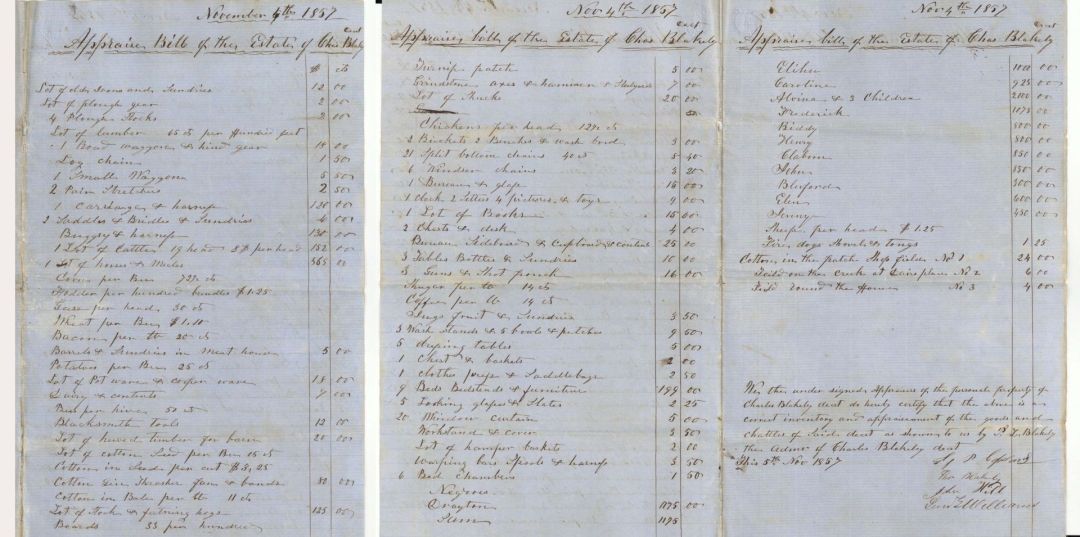 November 4th 1857
Appraise Bill of the Estate of Chas Blakely
$ cts
Lot of old irons and Sundries 12 00
Lot of plough gear 2 00
4 Plough Stocks 2 10
Lot of lumber 65 cts per Hundred feet
1 Road waggon & hind gear 18 00
Log chain 1 50
1 Small Waggon 5 50
2 Pair Stretchers 2 50
1 Carriage & harness 120 00
3 Saddles & Bridles & Sundries 4 00
Buggy & harness 130 00
1 Lot of Cattle 19 head 8$ per head 152 00
1 Lot of horses & Mules 565 00
Corn per Bus 72½ cts
Fodder per hundred bundles $1.25
Geese per head 30 cts
Wheat per Bus $1.10
Bacon per lb 20 cts
Barrels & Sundries in Meat house 5 00
Potatoes per Bus 25 cts
Lot of Pot ware & cooper ware 18 00
& contents 7 00
Bees per hive 50 cts
Blacksmith tools 12 00
Lot of hewed timber for barn 20 00
Lot of cotton Seed per Bus 15 cts
Cotton in Seed per cwt $3,25
Cotton Gin Thrasher fan & bands 80 00
Cotton in Bales per lb 11 cts
Lot of Stock & fatning hogs 125 00
Boards 55 per hundred
Nov 4th 1857
Appraise bill of the Estate of Chas Blakely
Turnip patch 5 00
Grindstone axes & hammer & 7 00
Lot of Shucks 20 00
Chickens per head 12½ cts
2 Buckets 2 Benches & wash bord 3 00
21 Split bottom chairs 40 cts 8 40
6 Windsor chairs 3 20
1 Bureau & glass 15 00
1 clock 2 Setters 4 pictures & toys 9 00
1 Lot of Books 15 00
2 Chests & desk 4 00
Bureau Sideboard & Cupboard & contents 25 00
3 Tables Bottles & Sundries 10 00
3 Guns & Shot pouch 16 00
Sugar per lb 14 cts
Coffee per lb 14 cts
Jugs fruit & Sundries 3 50
3 Wash Stands & 5 bowls & pitchers 9 50
5 dressing tables 5 00
1 Chest & baskets 2 00
1 clothes press & Saddlebags 2 50
9 Beds Bedsteads & furniture 199 00
5 Looking glasses & Slates 2 25
20 Window curtains 5 00
Workstand & cover 3 50
Lot of hamper baskets 2 00
Warping bars Spools & harness 3 50
6 Bed Chambers 1 50
Negroes
Drayton 1175 00
Sam 1175
Nov 4th 1857
Appraise bill of the Estate of Chas Blakely
Elihu 1000 00
Caroline 925 00
Alvina & 3 Children 2100 00
Frederick 1075 00
Biddy 800 00
Henry 800 00
Claborn 850 00
John 850 00
Bluford 500 00
600 00
Jenny 450 00
Sheep per head $1.25
Fire dogs Shovels & tongs 1 25
Cotton in the patch Shop field No 1 24 00
Field on the creek at place No 2 6 00
Field round the House No 3 4 00
We the under signed Appraisers of the personal property of
Charles Blakely decd do hereby certify that the above is a
correct inventory and appraisement of the goods and
chattles of Said decd as shown to us by Blakely
the Admr of Charles Blakely decd
This 5th Nov 1857
Blakely
Hill
Williams